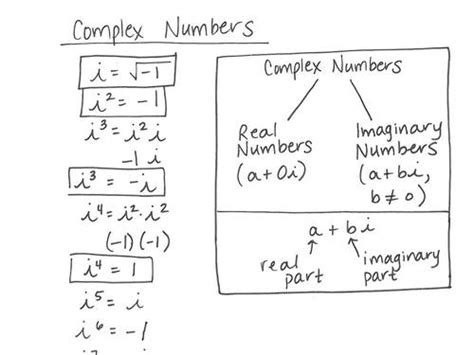 Complex Numbers
i = √-1
i² = -1
i³ = i² i
-1 i
i³ = -i
i⁴ = i² · i²
(-1) (-1)
i⁴ = 1
i⁵ = i
i⁶ = -1
Complex Numbers
Real
Numbers
(a + 0i)
Imaginary
Numbers
(a + bi,
b ≠ 0)
a + bi
real
part
imaginary
part